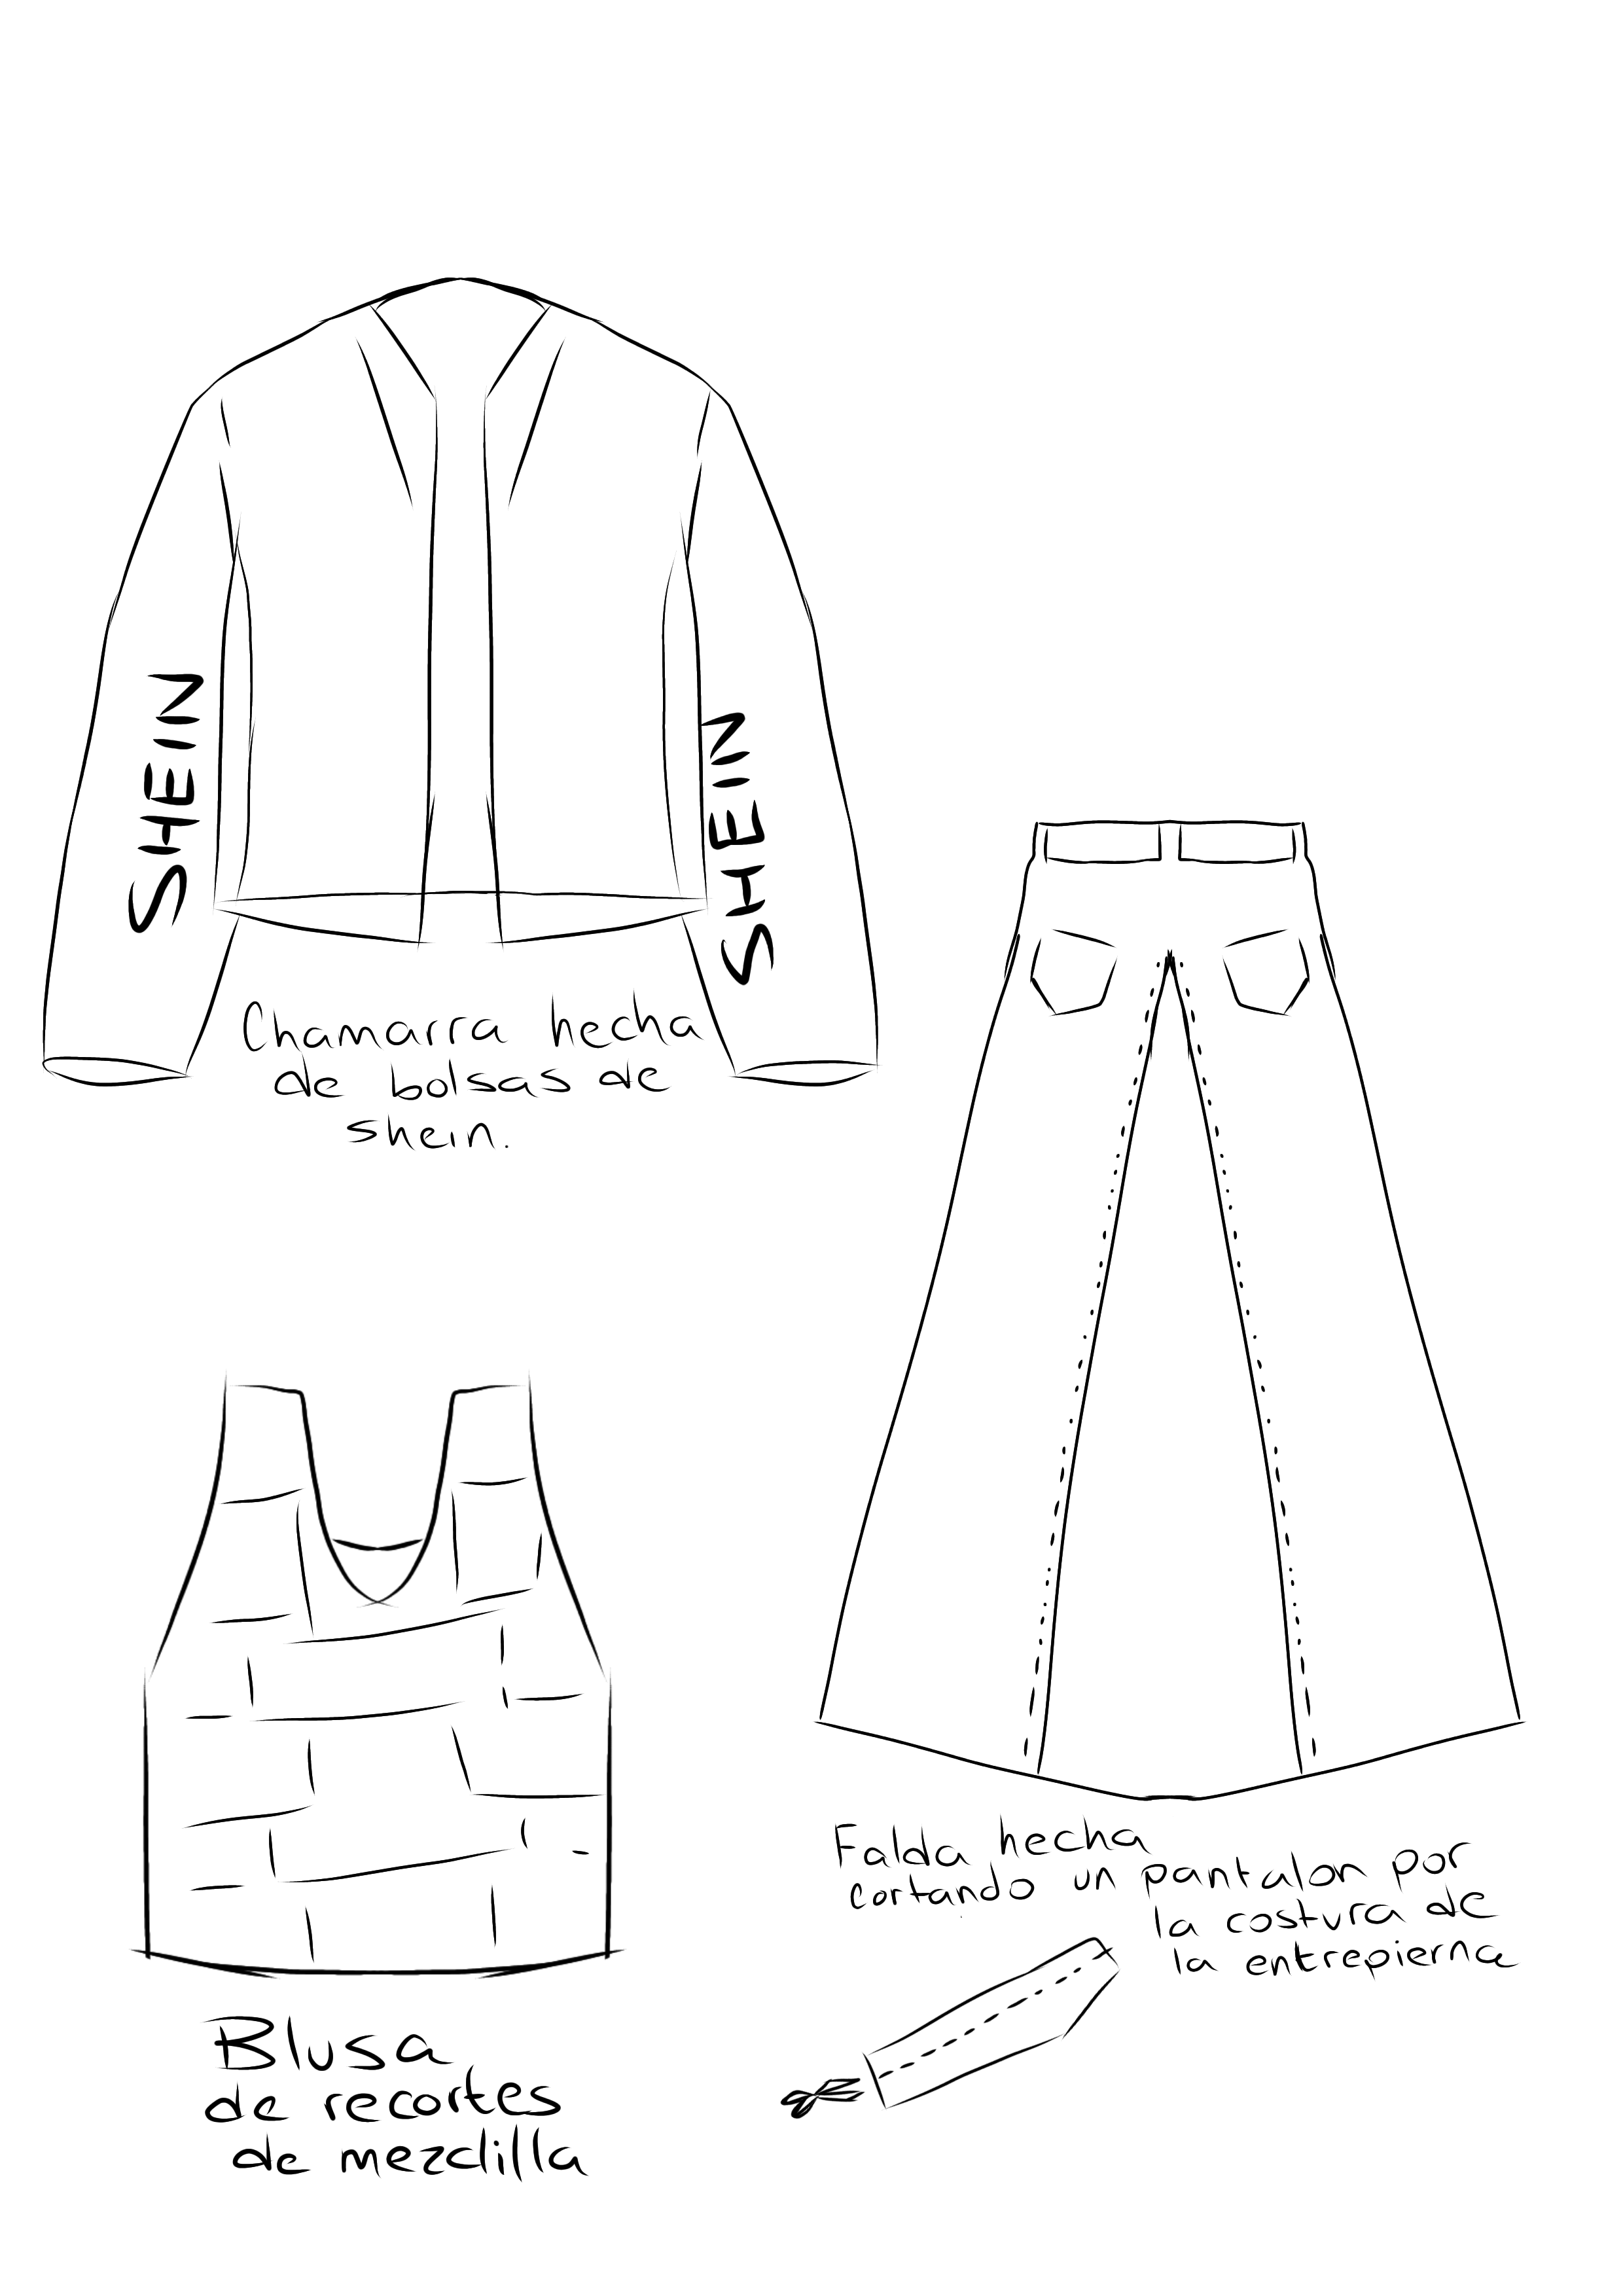 SHEIN
SHEIN
Chamarra hecha
de bolsas de
shein.
Falda hecha
cortando un pantalon por
la costura de
la entrepierna
Blusa
de recortes
de mezclilla